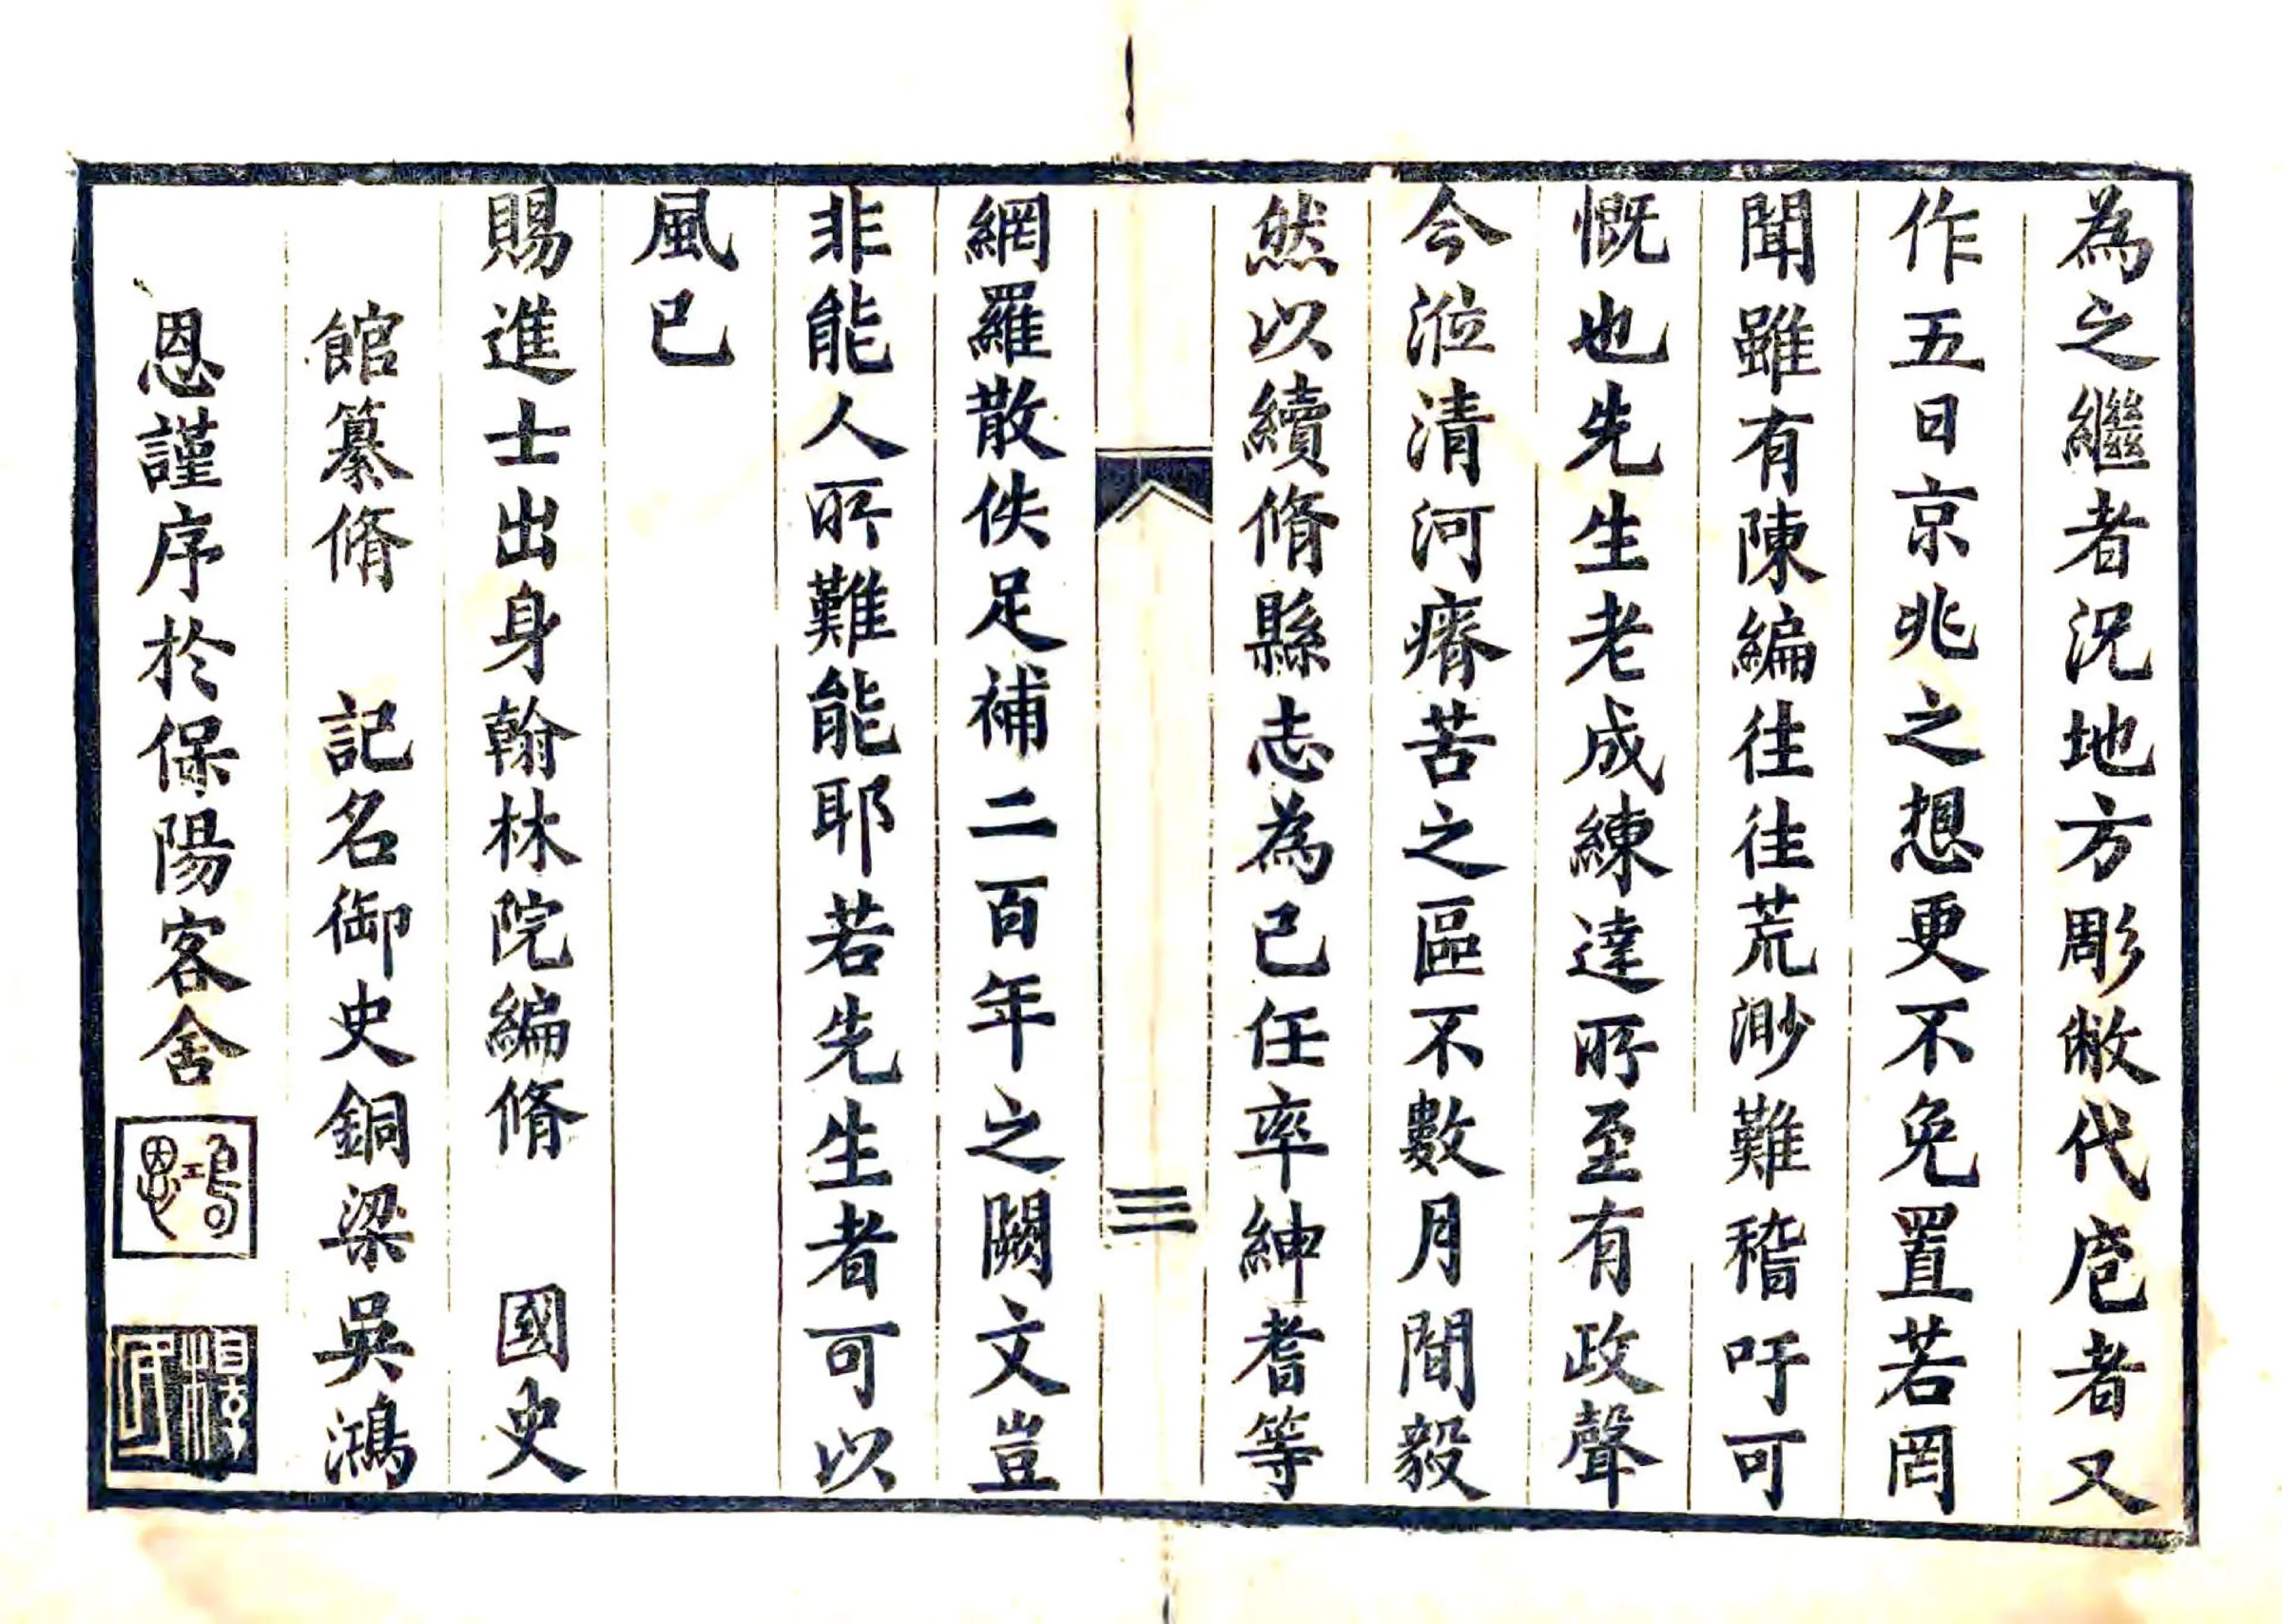 為之繼者況地方彫敝代庖者又
作五日京兆之想更不免置若罔
聞雖有陳編徃徃荒渺難稽吁可
慨也先生老成練達所至有政聲
今涖清河瘠苦之區不數月間毅
然以續脩縣志為己任率紳耆等
三
網羅散佚足補二百年之闕文豈
非能人所難能耶若先生者可以
風已
賜進士出身翰林院編脩 國史
館纂脩 記名御史銅梁吳鴻
恩謹序於保陽客舍
鴻恩